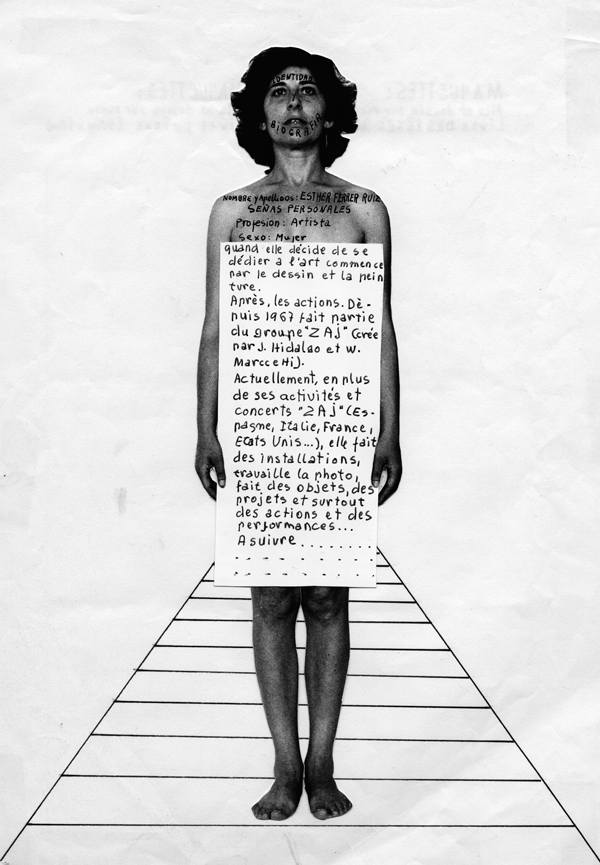 IDENTIDAD
BIOGRAFIA
NOMBRE y Apellidos: ESTHER FERRER RUIZ
SEÑAS PERSONALES
Profesion: Artista
Sexo: Mujer
quand elle décide de se
dédier a l'art commence
par le dessin et la pein
ture.
Après, les actions. Dè-
puis 1967 fait partie
du groupe "ZAj" (crée
par J. Hidalgo et W.
MarcceHi).
Actuellement, en plus
de ses activités et
concerts "ZAj" (Es-
pagne, Italie, France,
Etats Unis...), elle fait
des installations,
travaille la photo,
fait des objets, des
projets et surtout
des actions et des
performances...
A suivre........